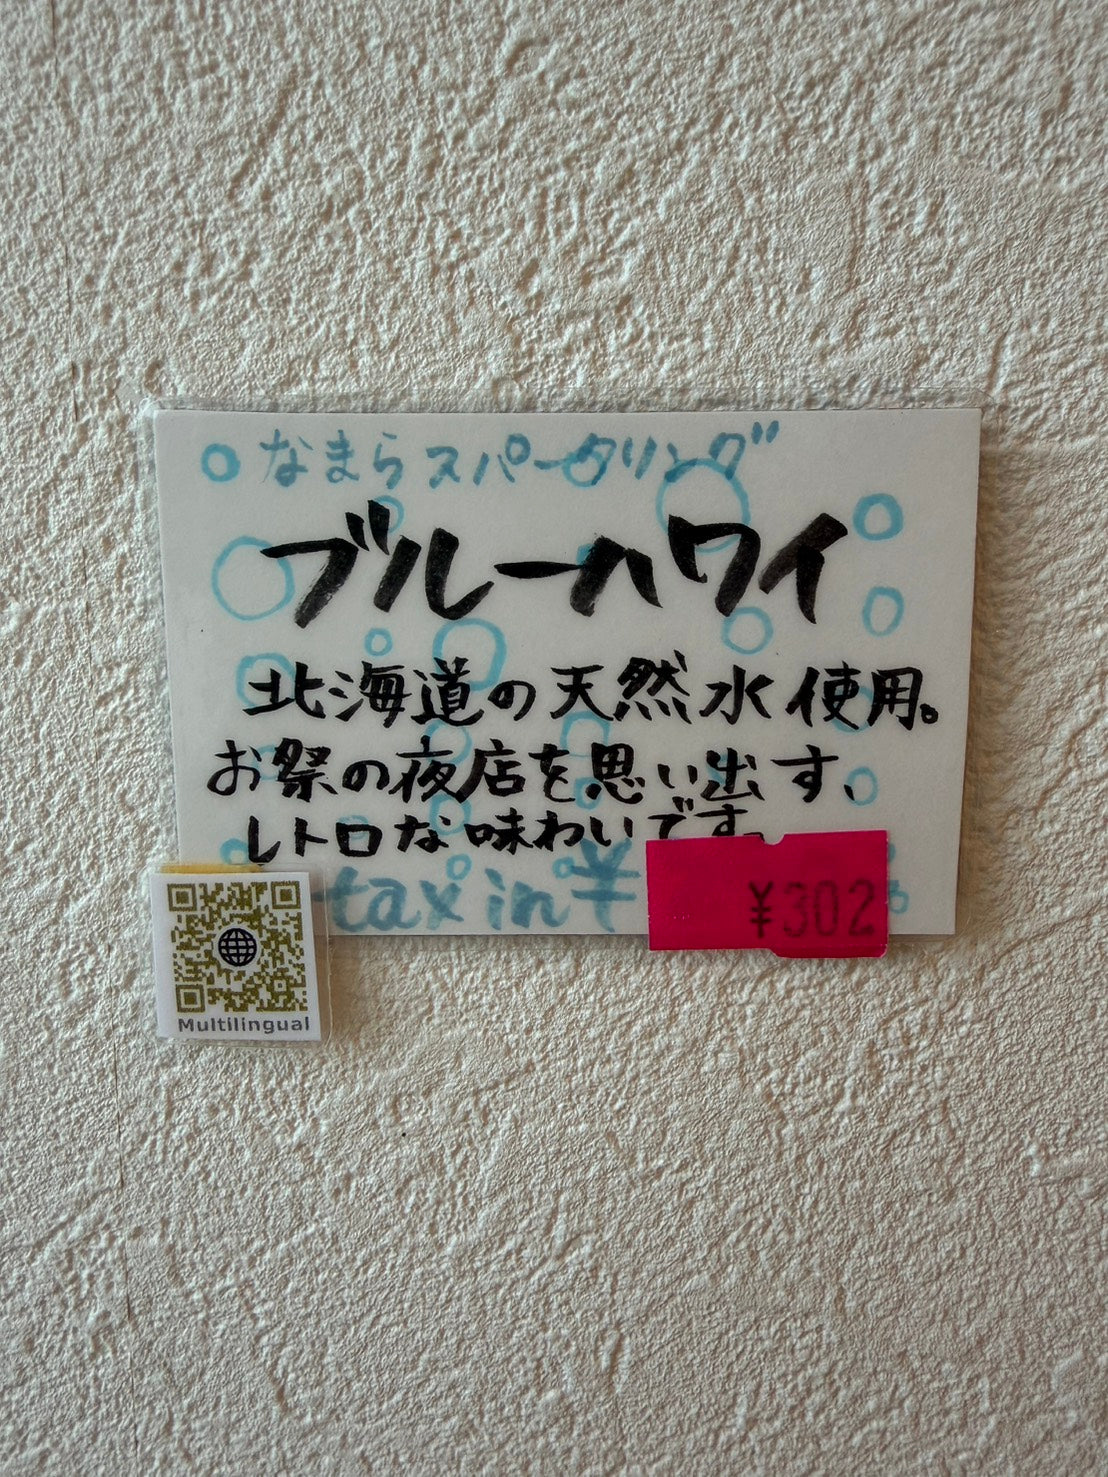 なまらスパークリング
ブルーハワイ
北海道の天然水使用。
お祭の夜店を思い出す、
レトロな味わいです。
tax in ¥
¥302
Multilingual